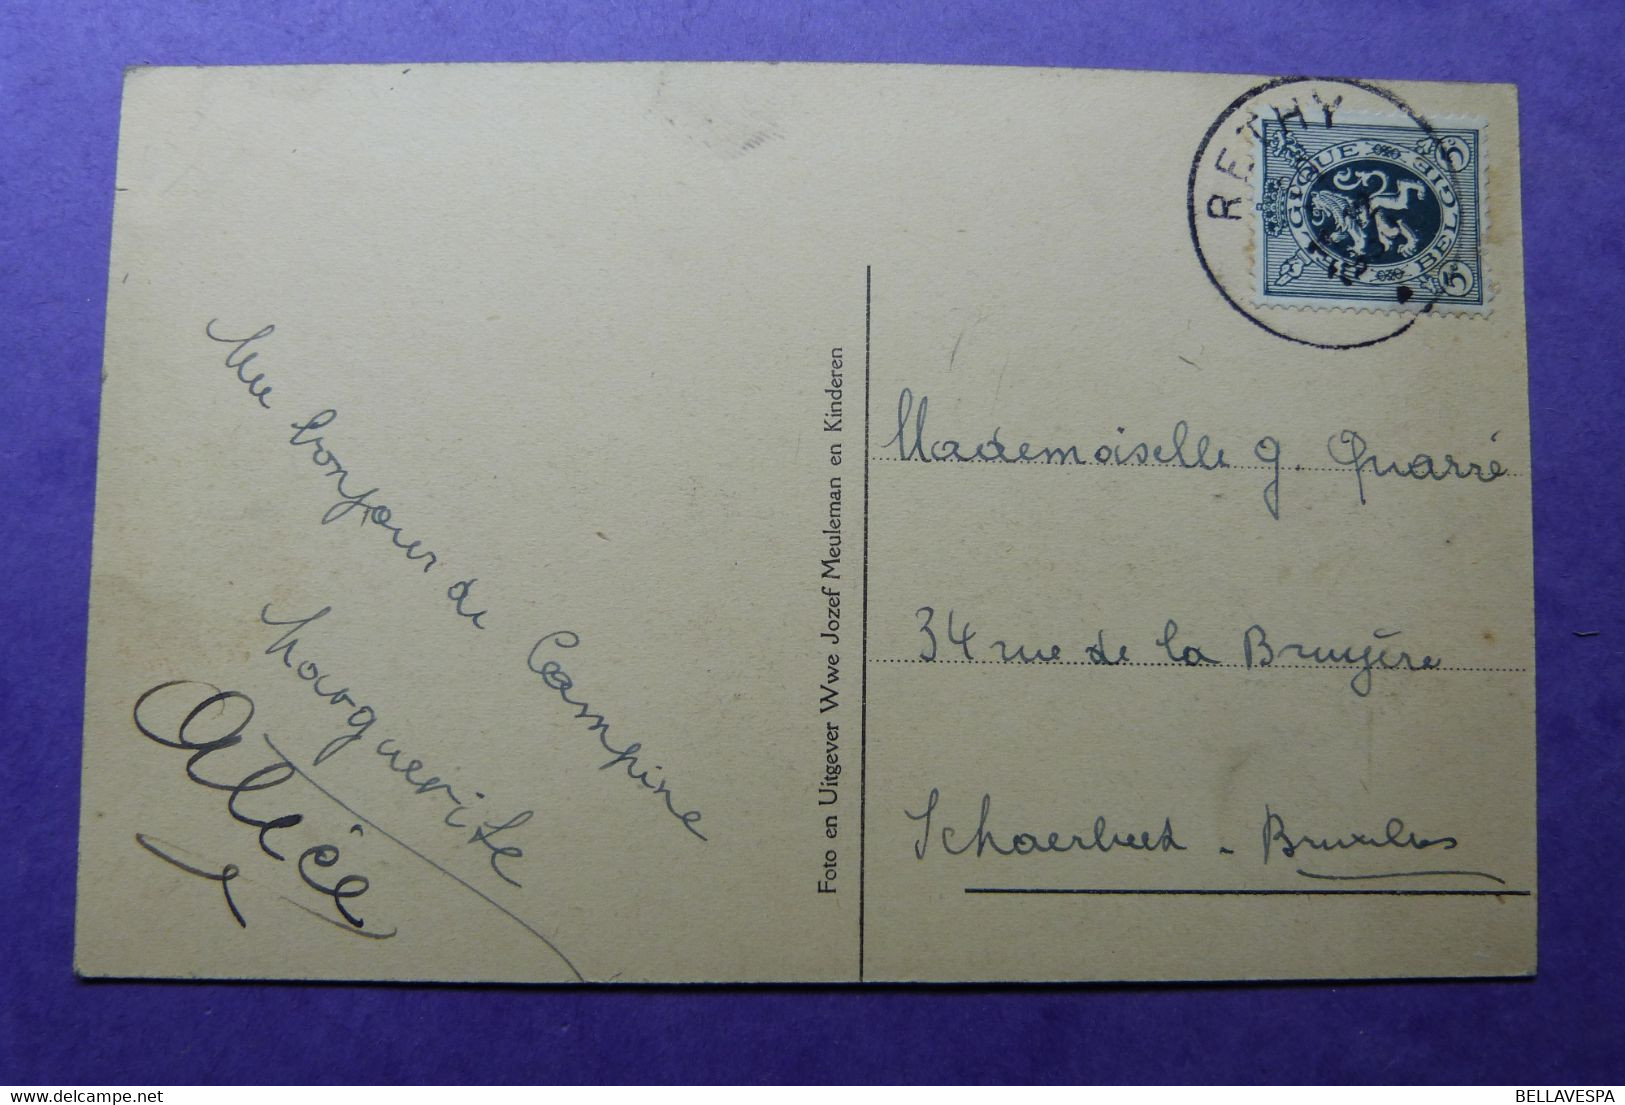 Un bonjour de Campine
Marguerite
Alice
Foto en Uitgever Wwe Jozef Meuleman en Kinderen
RETHY
BELGIQUE BELGIE
5c 5c
Mademoiselle G. Quarré
34 rue de la Bruyère
Schaerbeek - Bruxelles
BELLAVESPA